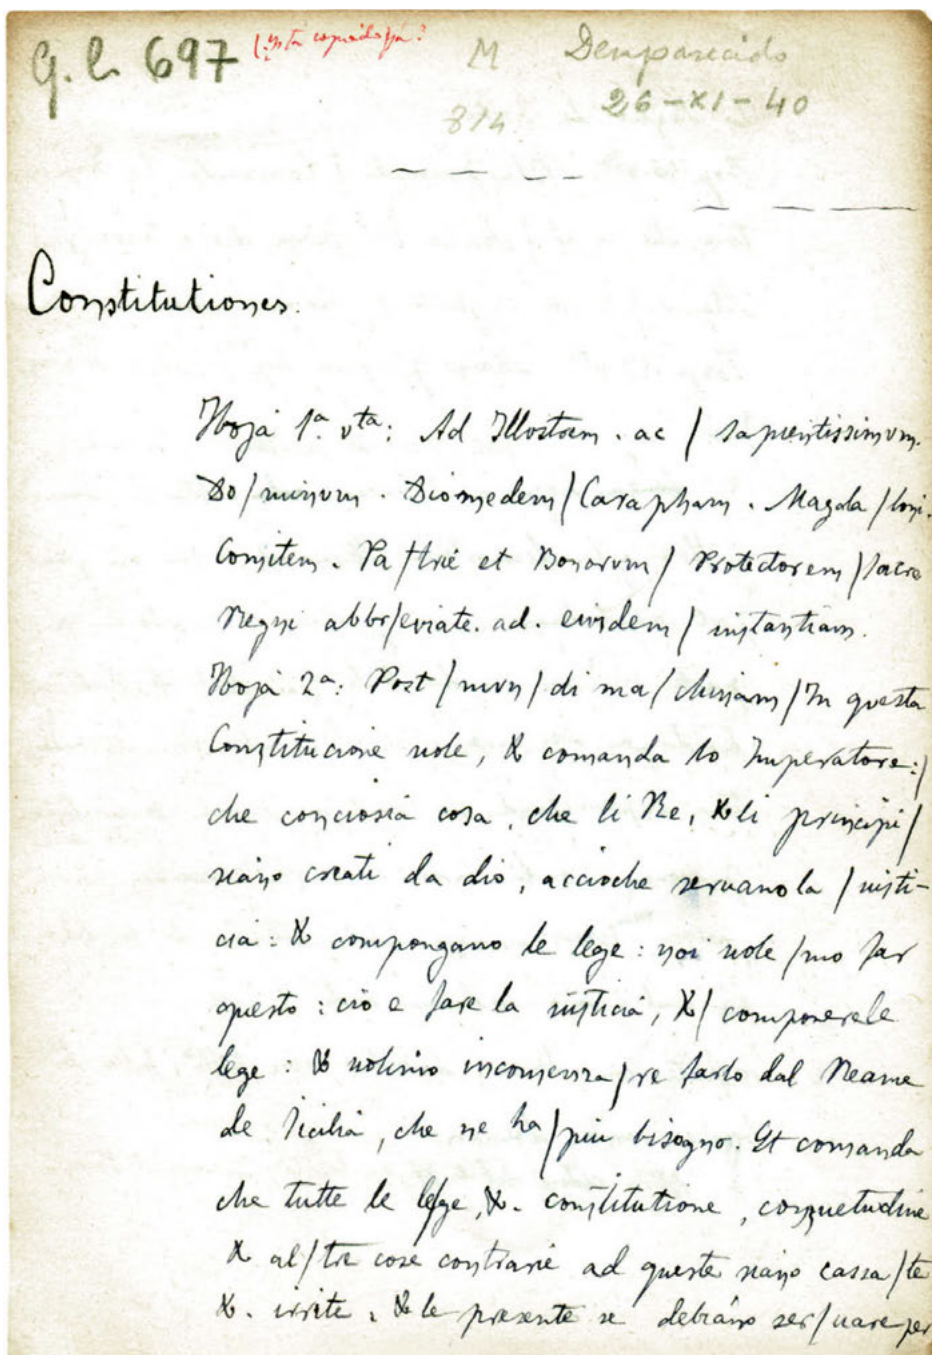 G. C. 697 (¿Está copiado ya?
M Desaparecido
814 26-XI-40
Constitutiones.
Hoja 1ª. vta: Ad Illostrem. ac / sapientissimum.
Do/minum. Diomedem / Carapham. Magda / loni.
Comitem. Pa / trie et Bonorum / Protectorem / Sacre
Regni abbr/eviate. ad. eiusdem / instantiam.
Hoja 2ª: Post / mun / di ma / chinam / In questa
Constitucione uole, & comanda lo Imperatore: /
che conciosia cosa, che li Re, & li principi /
siano creati da dio, accioche seruano la / iusti-
cia: & compongano le lege: noi uole / mo far
questo: cio e fare la iusticia, & / componere le
lege: & uolimo incomenza / re farlo dal Reame
de Sicilia, che ne ha / piu bisogno. Et comanda
che tutte le le/ge, &. constitutione, consuetudine
& al/tre cose contrarie ad queste siano cassa / te
&. irrite. & le presente se debiano ser / uare per